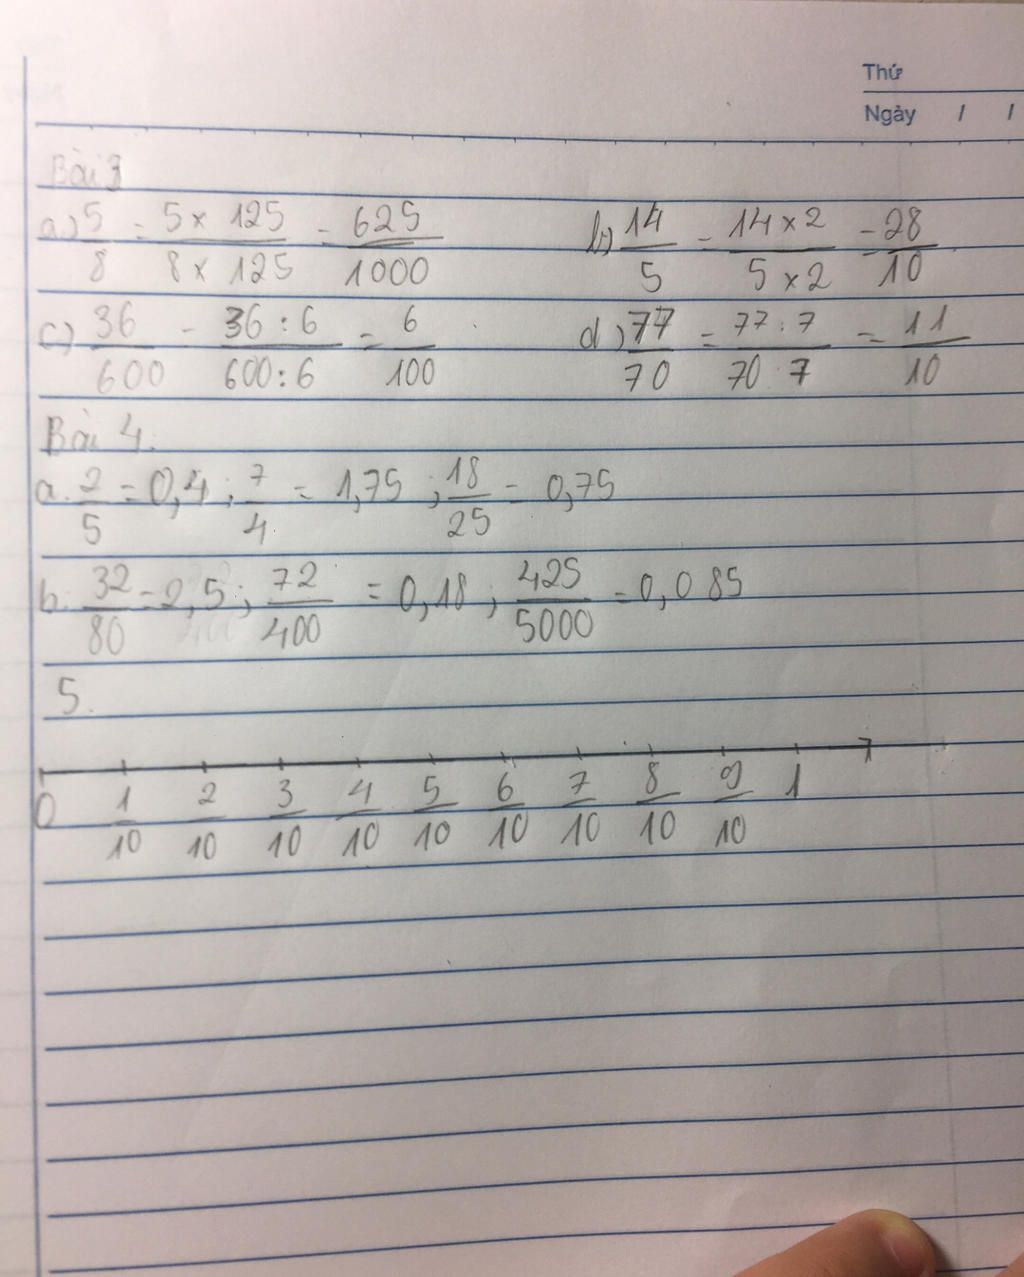 Thứ
Ngày / /
Bài 3
a) 5/8 = 5 x 125 / 8 x 125 = 625/1000 b) 14/5 = 14 x 2 / 5 x 2 = 28/10
c) 36/600 = 36 : 6 / 600 : 6 = 6/100 d) 77/70 = 77 : 7 / 70 : 7 = 11/10
Bài 4.
a. 2/5 = 0,4 ; 7/4 = 1,75 ; 18/25 = 0,75
b. 32/80 = 2,5 ; 72/400 = 0,18 ; 425/5000 = 0,085
5.
0 1/10 2/10 3/10 4/10 5/10 6/10 7/10 8/10 9/10 1